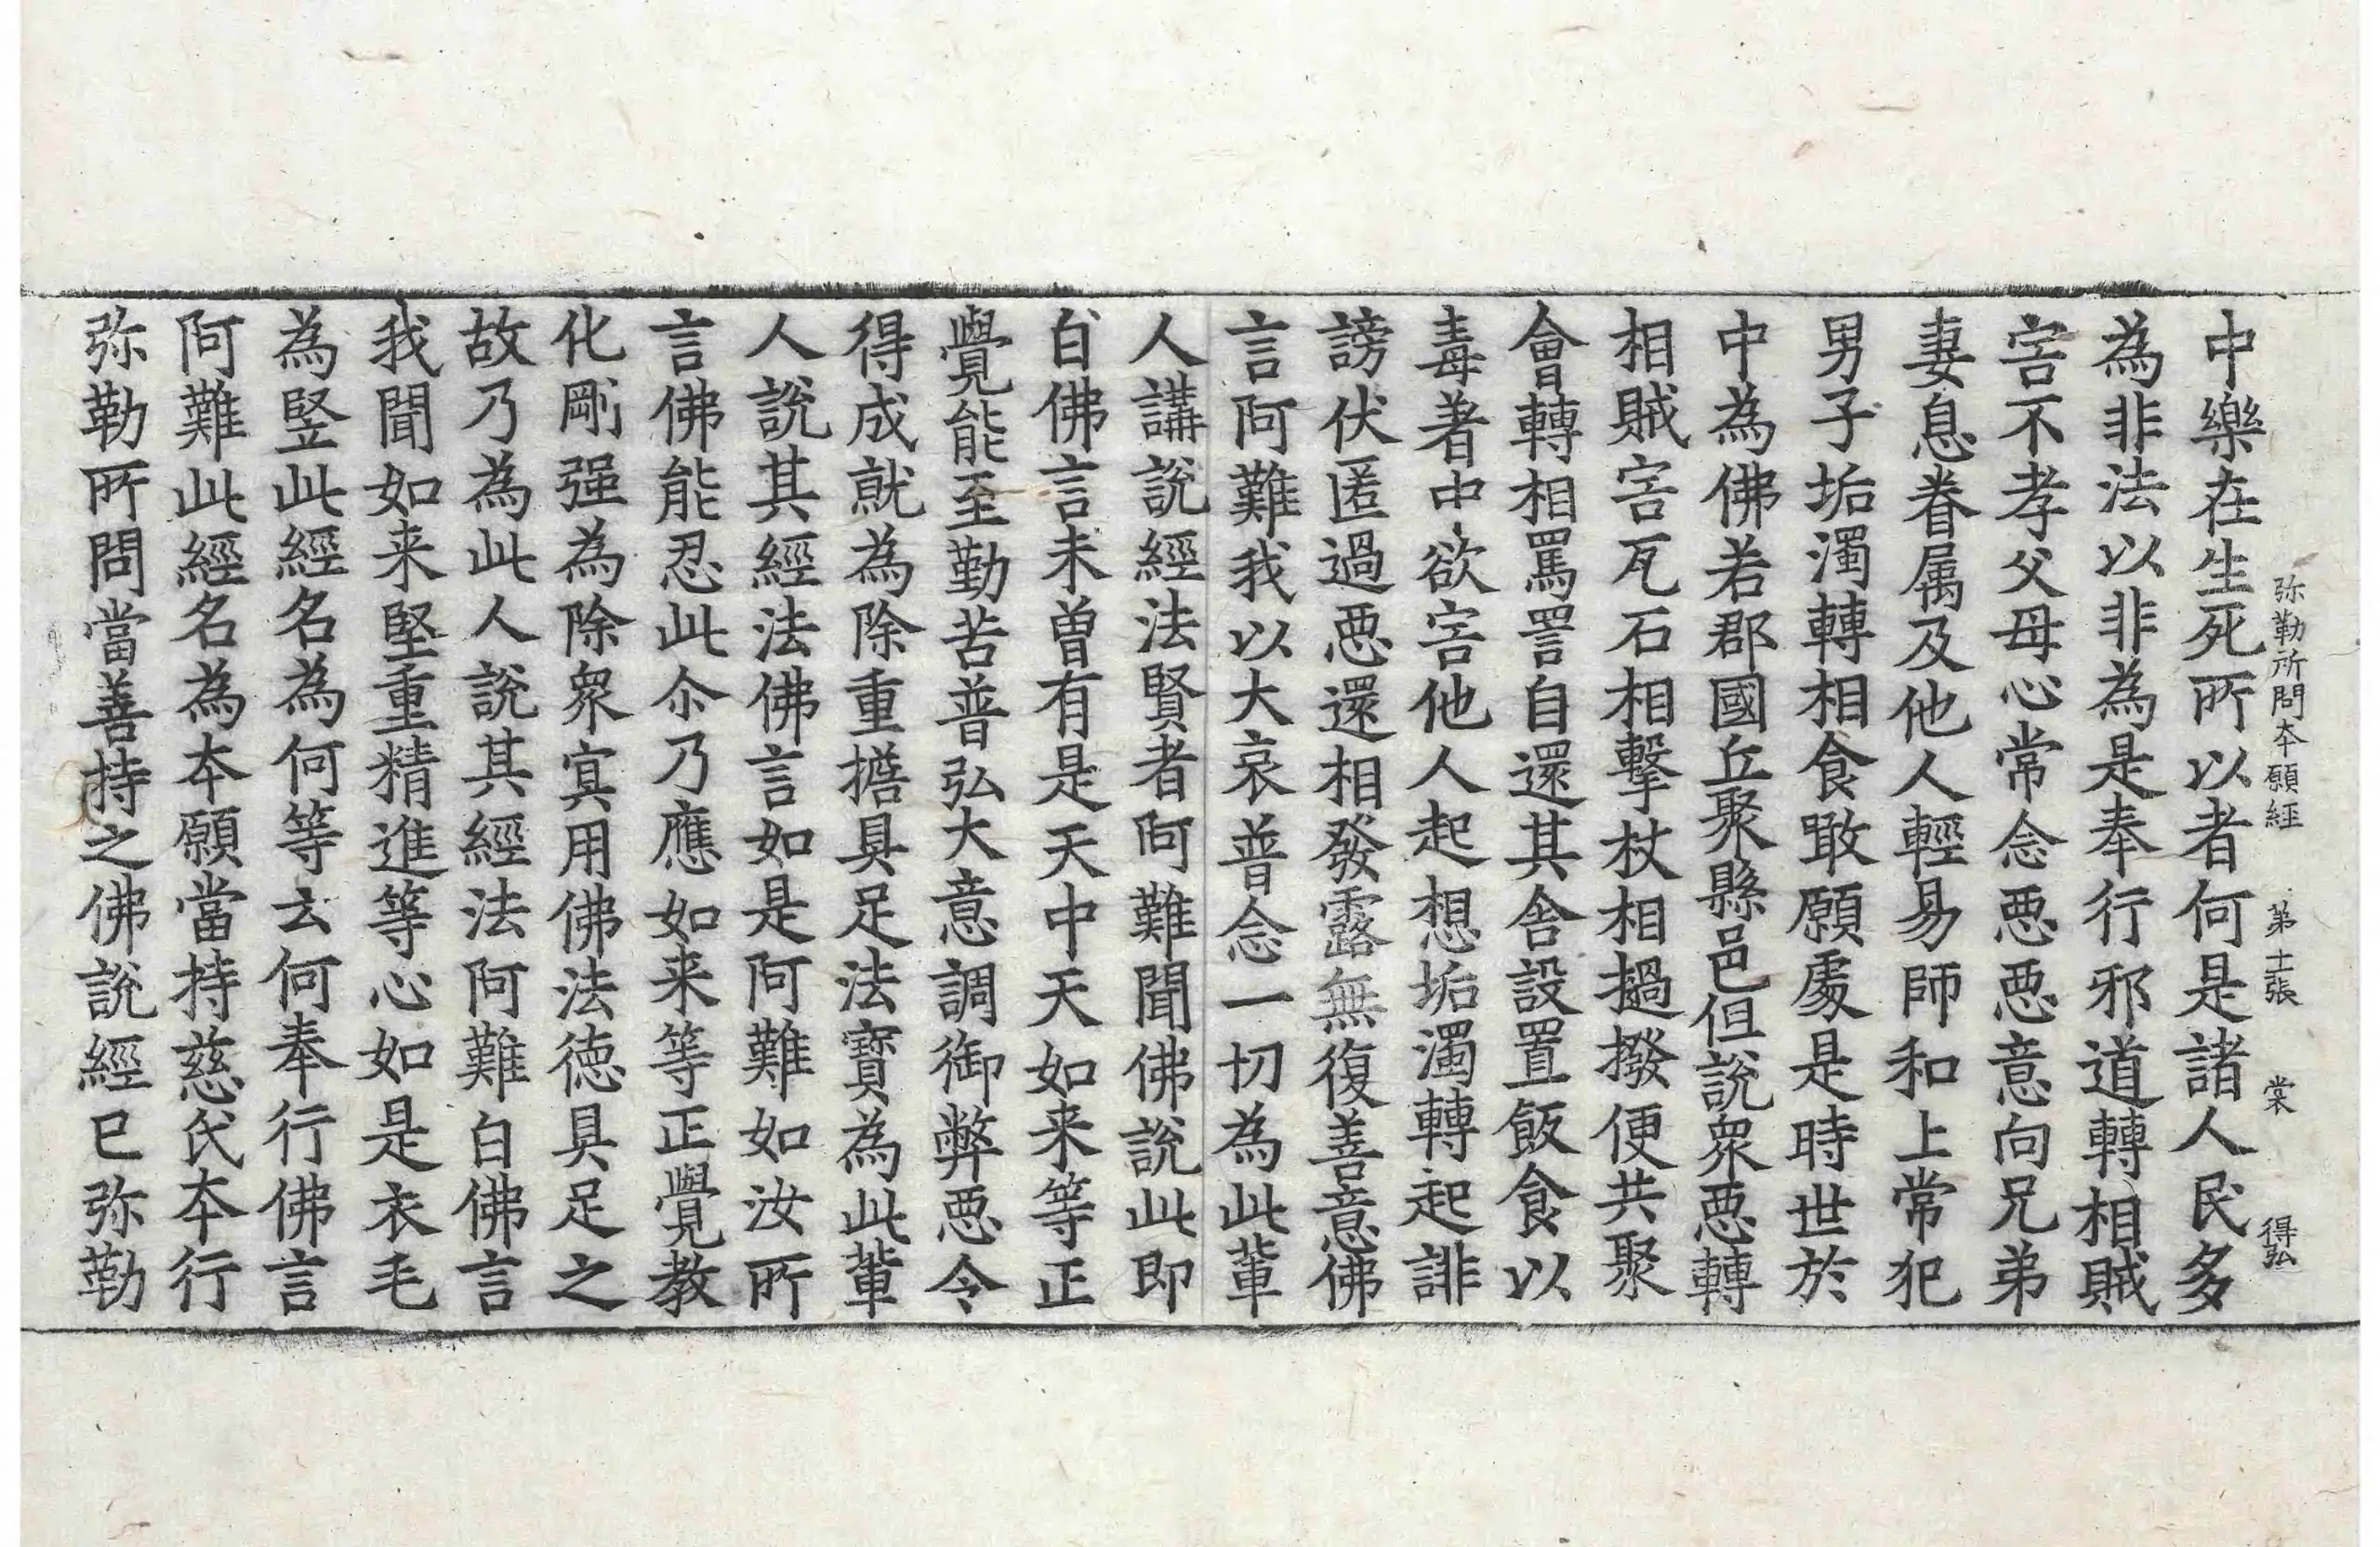 弥勒所問本願經 第十一張 裳 得弘
中樂在生死所以者何是諸人民多
為非法以非為是奉行邪道轉相賊
害不孝父母心常念惡惡意向兄弟
妻息眷属及他人輕易師和上常犯
男子垢濁轉相食噉願處是時世於
中為佛若郡國丘聚縣邑但說衆惡轉
相賊害瓦石相擊杖相撾撥便共聚
會轉相罵詈自還其舍設置飯食以
毒著中欲害他人起想垢濁轉起誹
謗伏匿過惡還相發露無復善意佛
言阿難我以大哀普念一切為此輩
人講說經法賢者阿難聞佛說此即
白佛言未曾有是天中天如来等正
覺能至勤苦普弘大意調御弊惡令
得成就為除重擔具足法寶為此輩
人說其經法佛言如是阿難如汝所
言佛能忍此尒乃應如来等正覺教
化剛强為除衆冥用佛法德具足之
故乃為此人說其經法阿難白佛言
我聞如来堅重精進等心如是衣毛
為竪此經名為何等云何奉行佛言
阿難此經名為本願當持慈氏本行
弥勒所問當善持之佛說經已弥勒